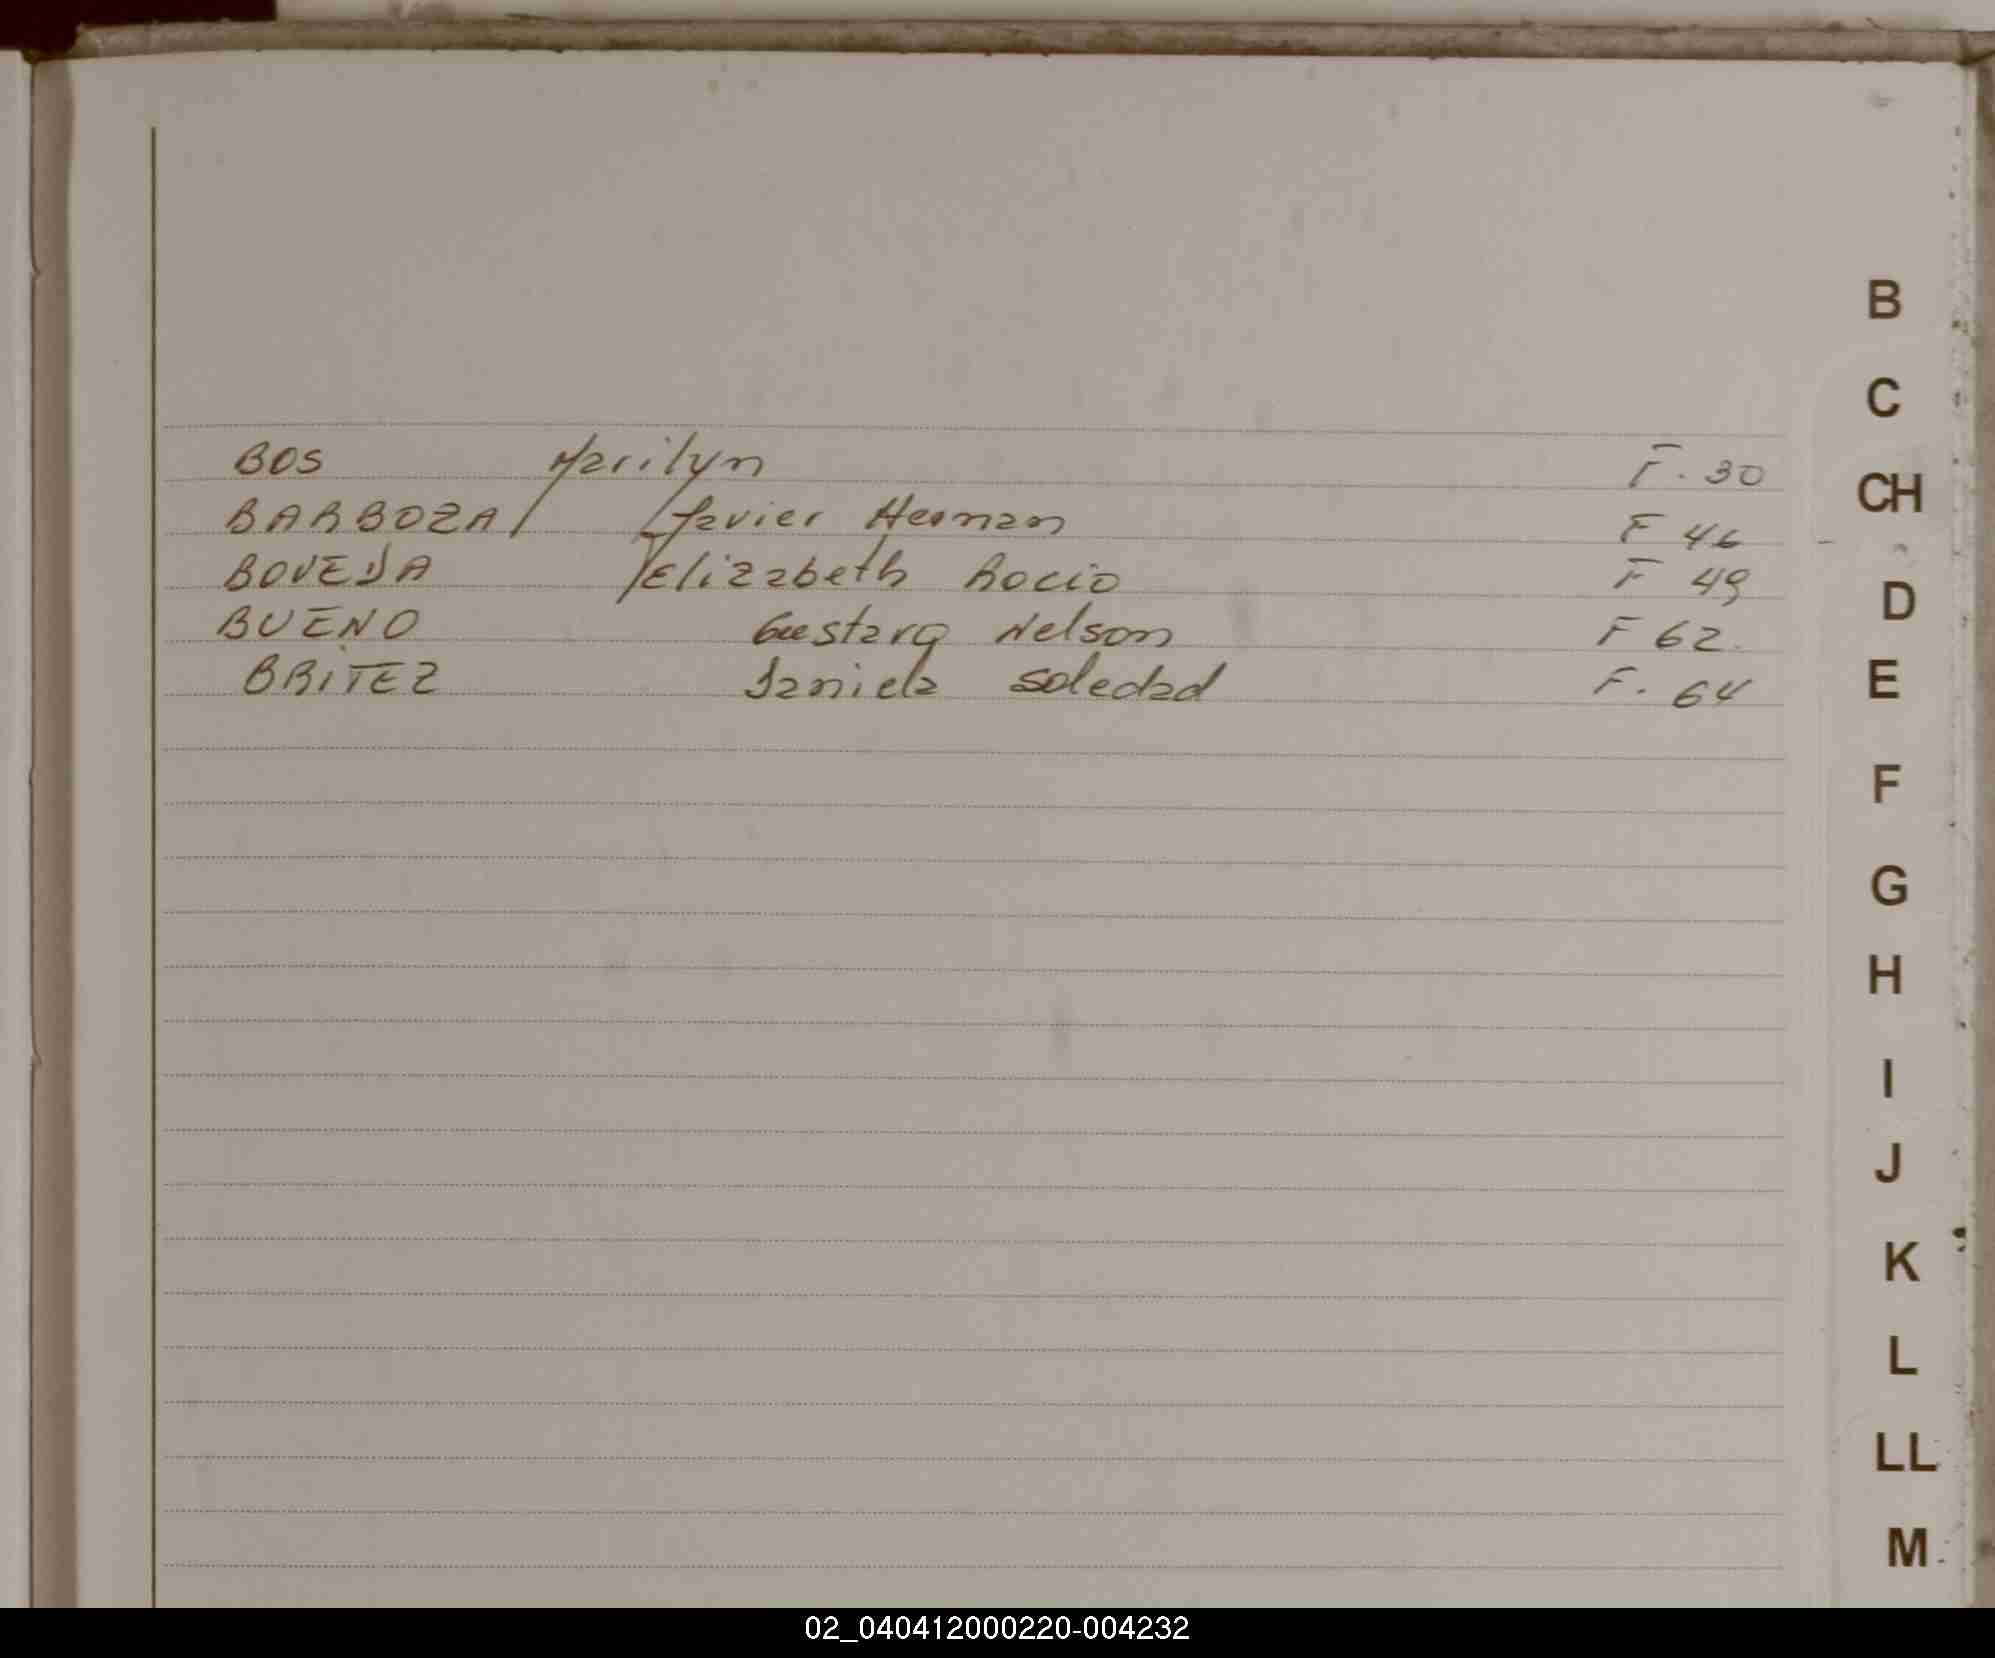 BOS Marilyn F. 30
BARBOZA Javier Hernan F 46
BOVEDA Elizabeth Rocio F 49
BUENO Gustavo Nelson F 62.
BRITEZ Daniela Soledad F. 64
B
C
CH
D
E
F
G
H
I
J
K
L
LL
M
02_040412000220-004232